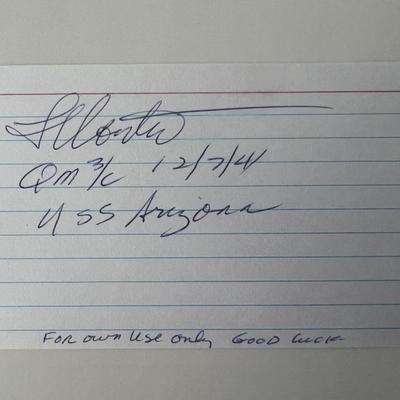 QM 3/c 12/7/41
USS Arizona
For own use only Good luck